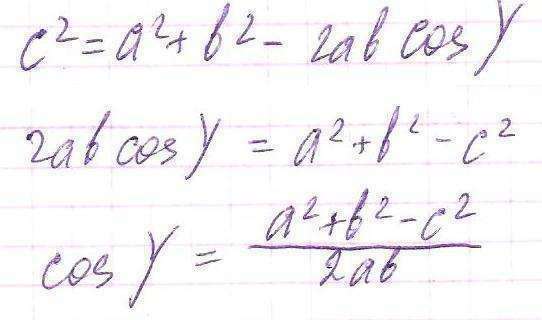 c² = a² + b² - 2ab cos γ
2ab cos γ = a² + b² - c²
cos γ = (a² + b² - c²) / 2ab